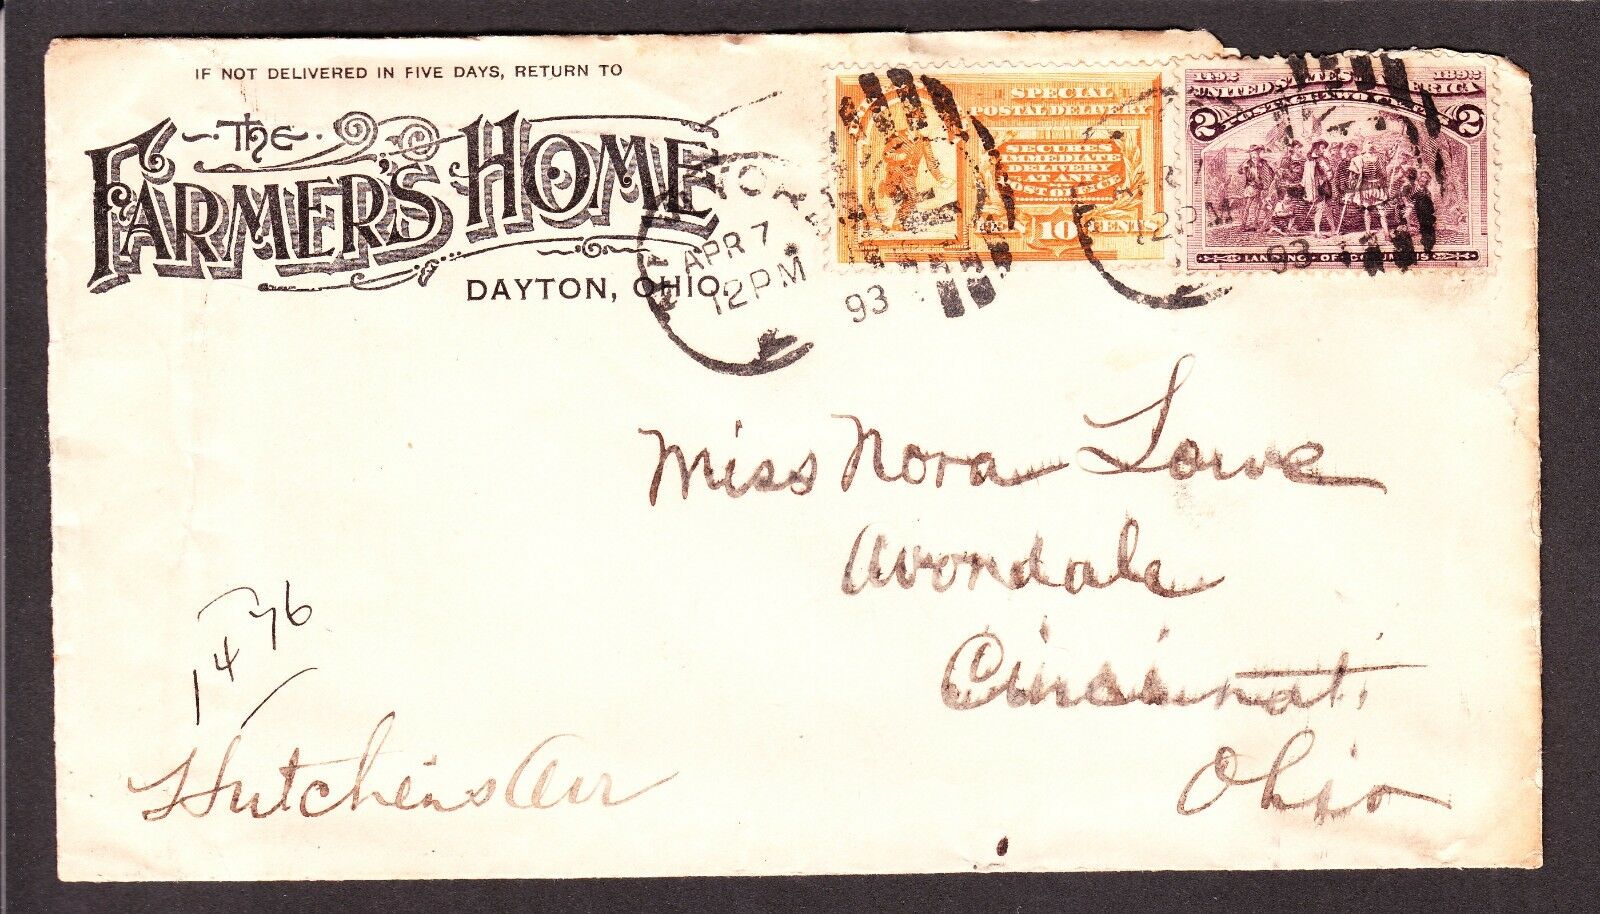 IF NOT DELIVERED IN FIVE DAYS, RETURN TO
The
FARMER'S HOME
DAYTON, OHIO.
APR 7
12 PM
93
SPECIAL
POSTAL DELIVERY
SECURES
IMMEDIATE
DELIVERY
AT ANY
POST OFFICE
10 CENTS
12 PM
93
1492 1892
UNITED STATES OF AMERICA
2 2
LANDING OF COLUMBUS
Miss Nora Lowe
Avondale
Cincinnati
Ohio
1476
Hutchins Ave